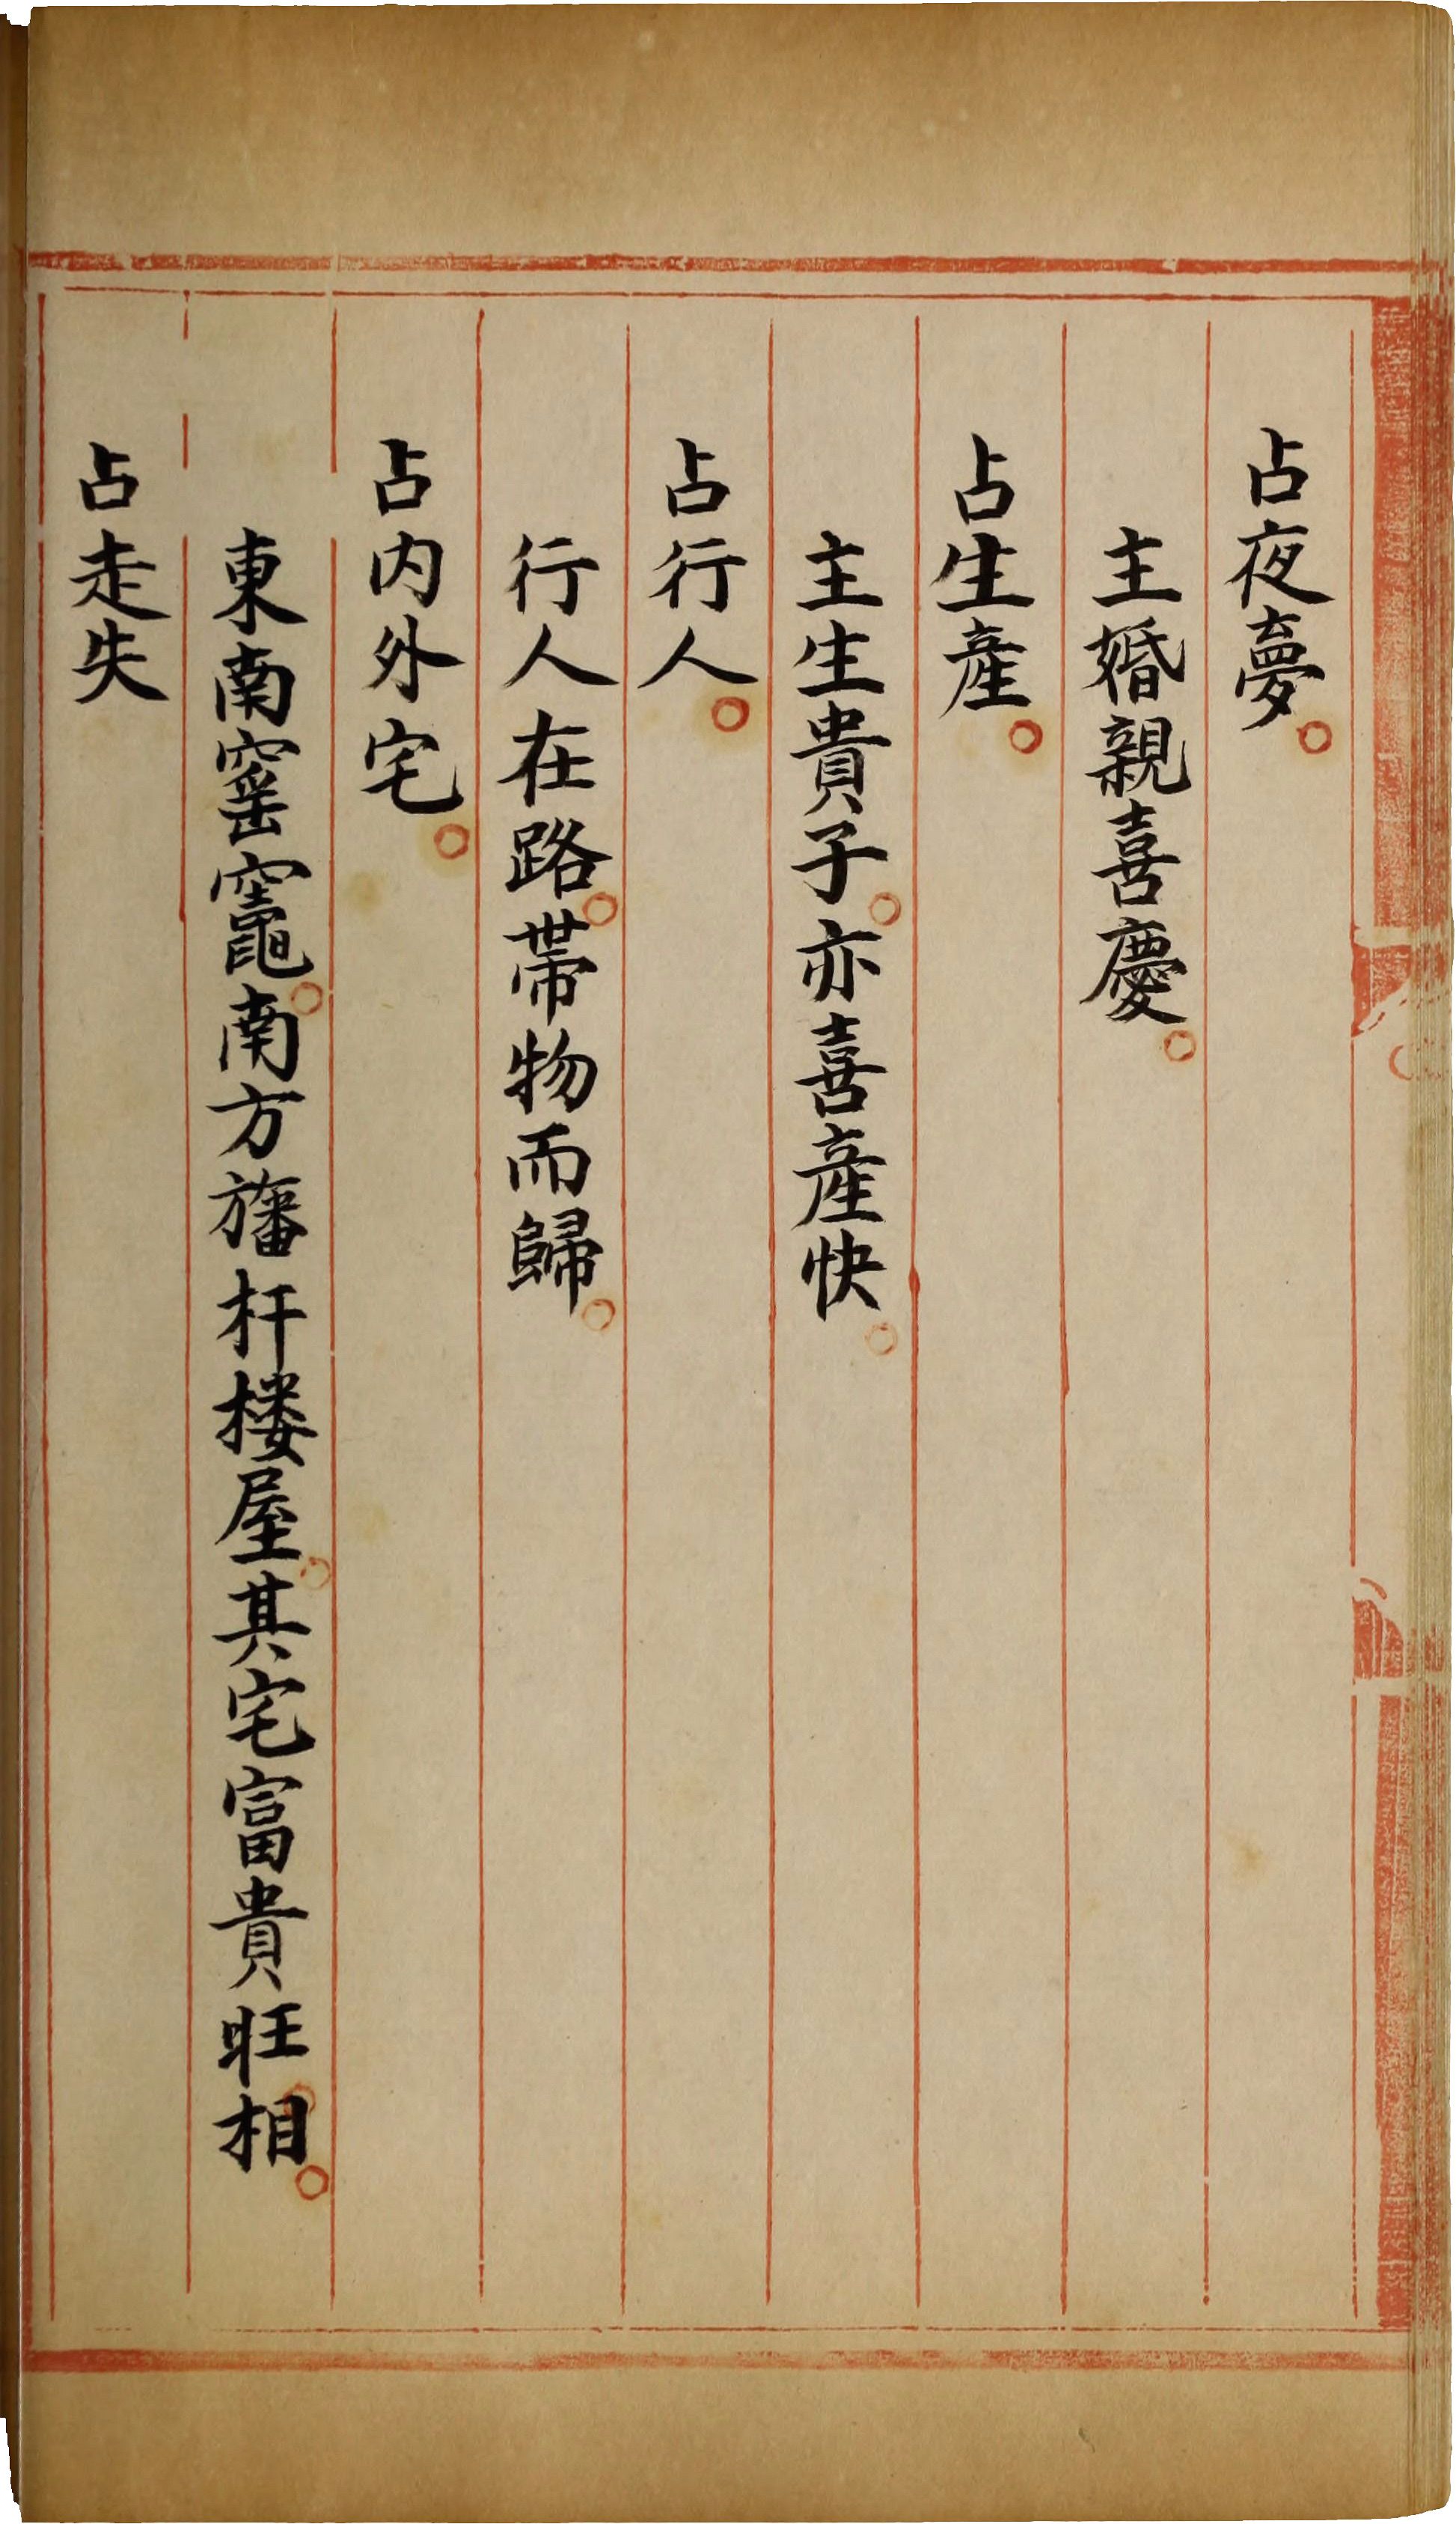 占夜夢。
主婚親喜慶。
占生產。
主生貴子。亦喜產快。
占行人。
行人在路。帶物而歸。
占内外宅。
東南窰竈。南方旛杆楼屋。其宅富貴旺相。
占走失